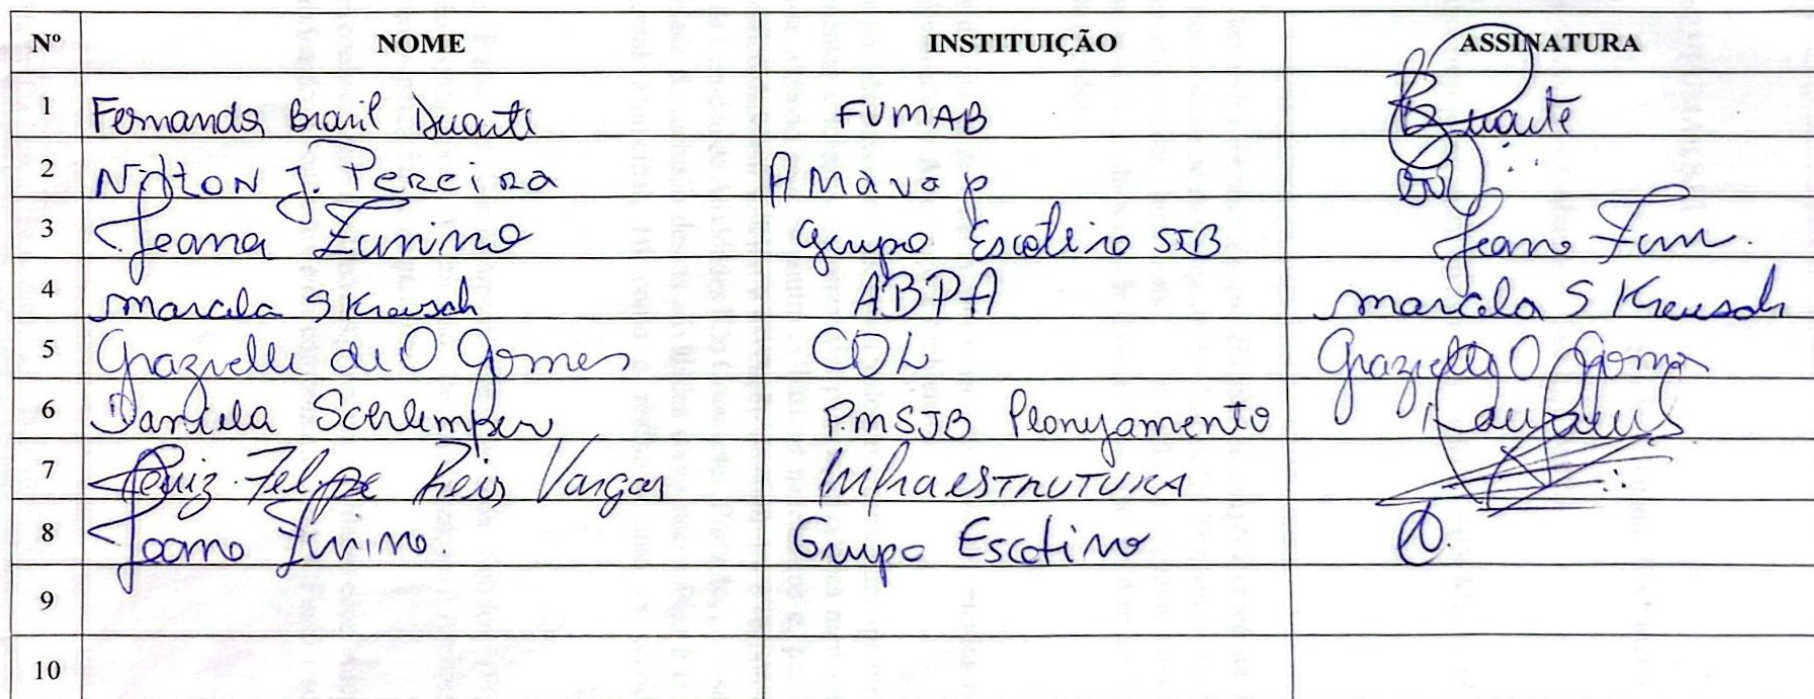 Nº NOME INSTITUIÇÃO ASSINATURA
1 Fernanda Brasil Duarte FUMAB Duarte
2 Nilton J. Pereira Amavap
3 Jeana Zunino Grupo Escoteiro SJB Jeana Zun.
4 Marcela S Kreusch ABPA Marcela S Kreusch
5 Grazielle de O Gomes CDL Grazielle O Gomes
6 Daniela Scerlemper PMSJB Planejamento
7 Luiz Felipe Reis Vargas Infraestrutura
8 Jeano Zunino. Grupo Escoteiro
9
10